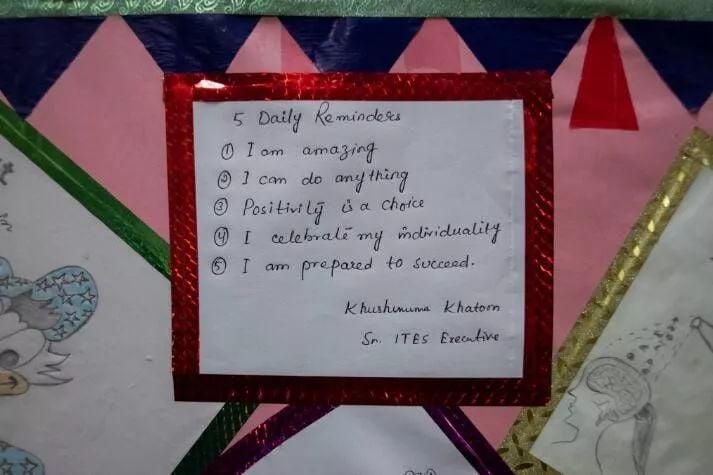 5 Daily Reminders
① I am amazing
② I can do anything
③ Positivity is a choice
④ I celebrate my individuality
⑤ I am prepared to succeed.
Khushnuma Khatoon
Sr. ITES Executive